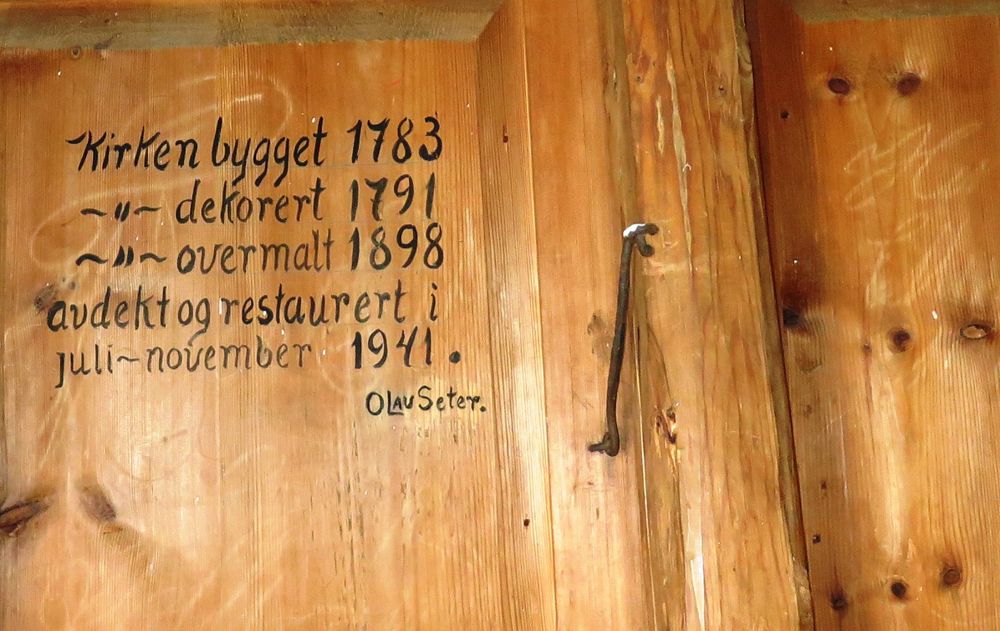 Kirken bygget 1783
~ " ~ dekorert 1791
~ " ~ overmalt 1898
avdekt og restaurert i
juli~november 1941.
OLAV Seter.